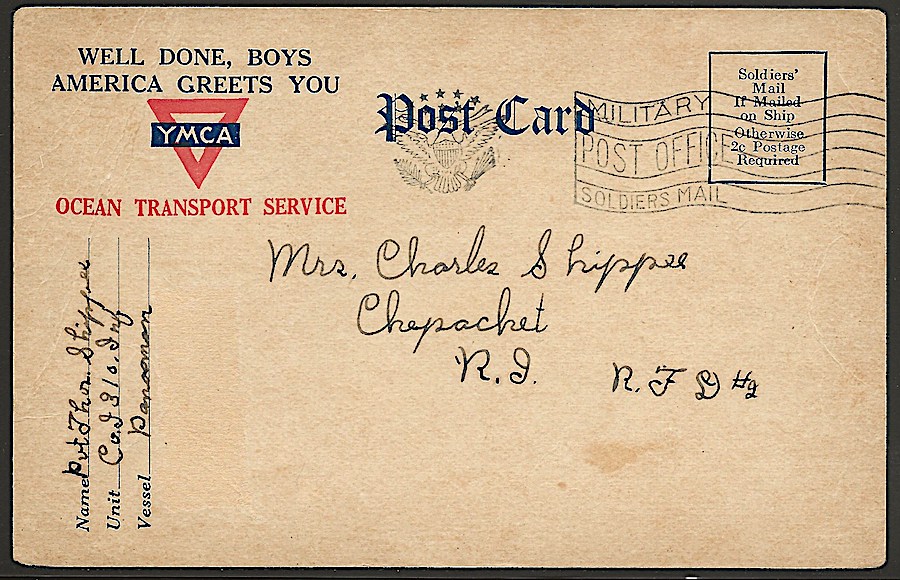 WELL DONE, BOYS
AMERICA GREETS YOU
YMCA
OCEAN TRANSPORT SERVICE
Post Card
MILITARY
POST OFFICE
SOLDIERS MAIL
Soldiers'
Mail
If Mailed
on Ship
Otherwise
2c Postage
Required
Mrs. Charles Shippee
Chepachet
R.I.
R.F D #2
Name Pvt Thos. Shippee
Unit Co. I 310. Inf
Vessel Panaman